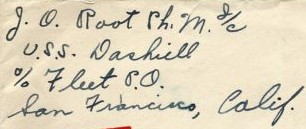 J. O. Root Ph. M. 3/c
U.S.S. Dashiell
% Fleet P.O.
San Francisco, Calif.